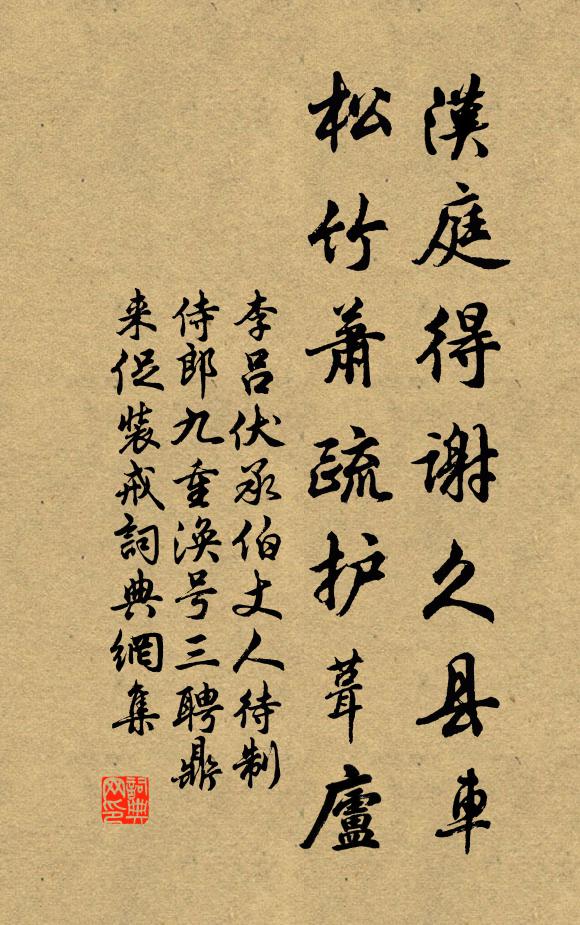 漢庭得谢久县車
松竹蕭疏护葺廬
李吕伏承伯丈人待制
侍郎九重涣号三聘鼎
来促裝戒詞典網集
詞典网印